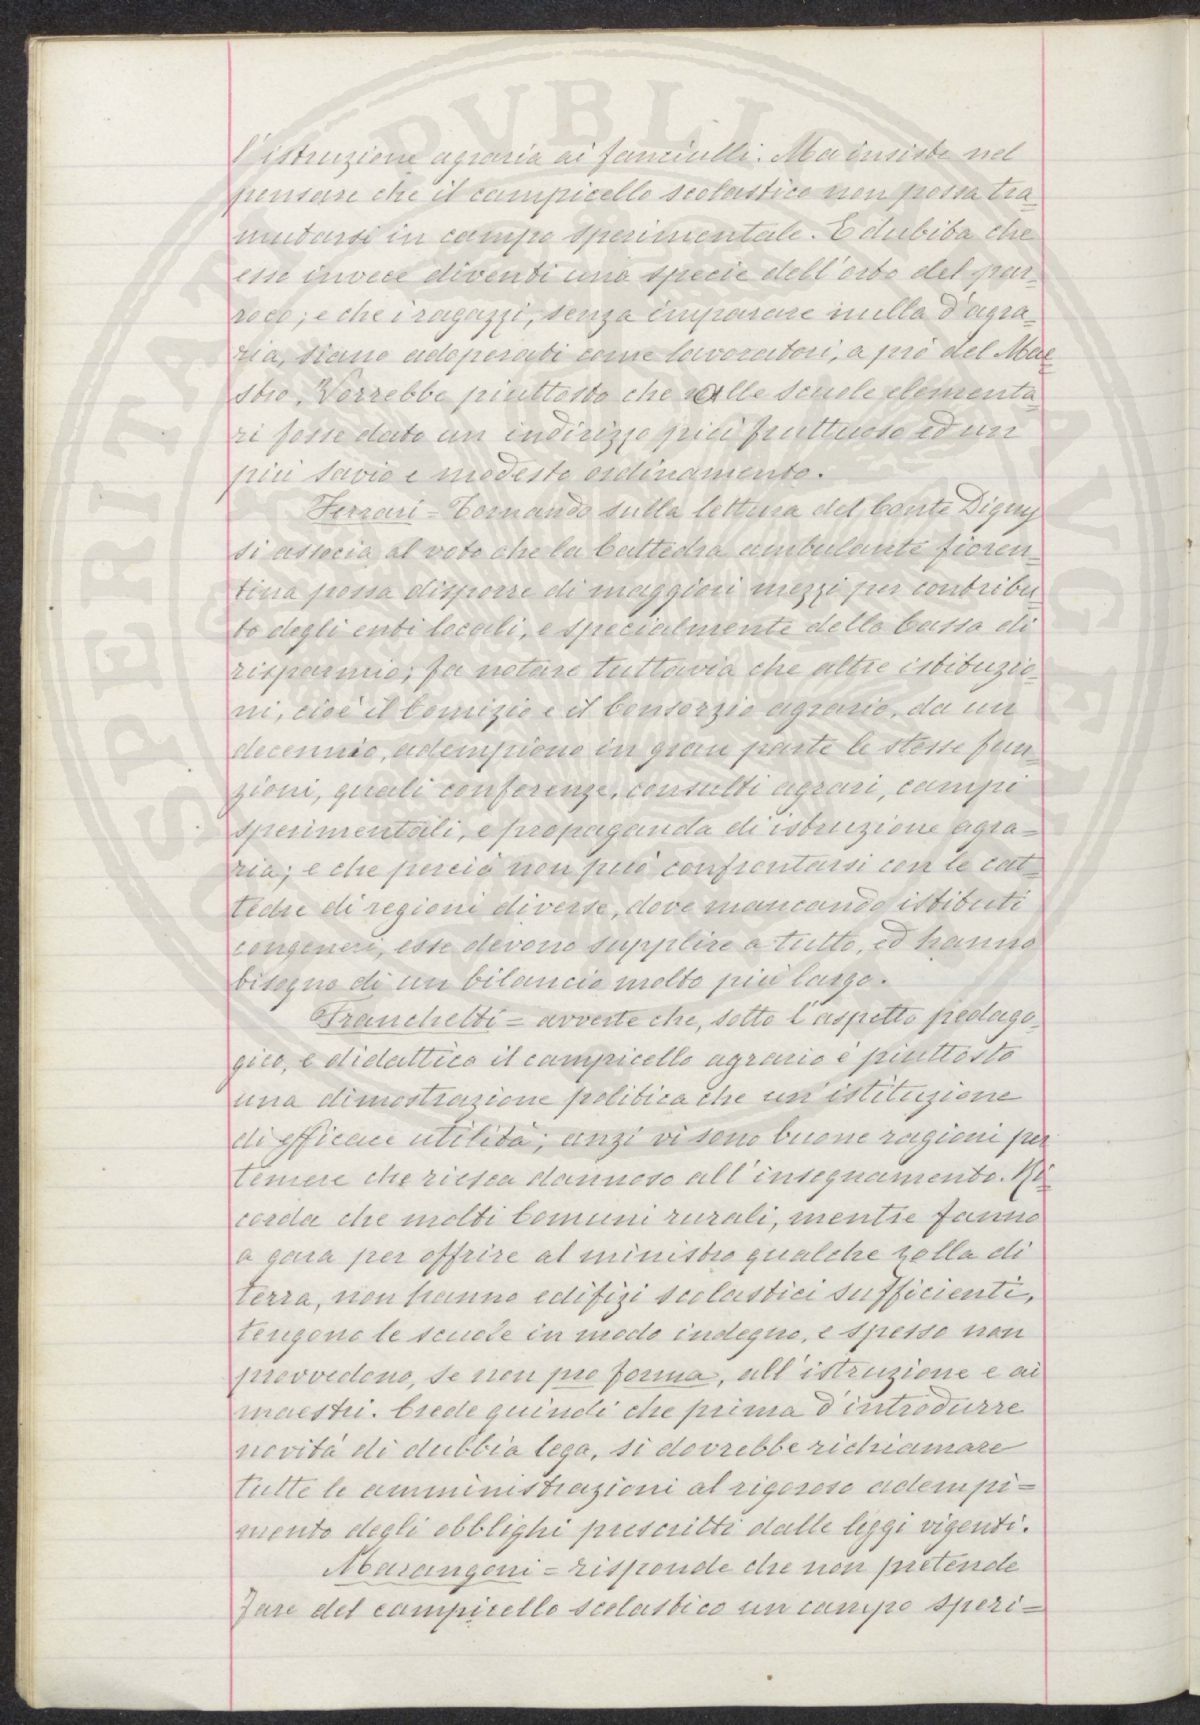 l'istruzione agraria ai fanciulli. Ma insiste nel
pensare che il campicello scolastico non possa tra-
mutarsi in campo sperimentale. E dubita che
esso invece diventi una specie dell'orto del par-
roco; e che i ragazzi, senza imparare nulla d'agra-
ria, siano adoperati come lavoratori, a prò del Mae-
stro. Vorrebbe piuttosto che alle scuole elementa-
ri fosse dato un indirizzo più fruttuoso ed un
più savio e modesto ordinamento.
Ferrari = Tornando sulla lettura del Conte Digny
si associa al voto che la Cattedra ambulante fioren-
tina possa disporre di maggiori mezzi per contribu-
to degli enti locali, e specialmente della Cassa di
risparmio; fa notare tuttavia che altre istituzio-
ni, cioè il Comizio e il Consorzio agrario, da un
decennio, adempiono in gran parte le stesse fun-
zioni, quali conferenze, consulti agrari, campi
sperimentali, e propaganda di istruzione agra=
ria; e che perciò non può confrontarsi con le cat-
tedre di regioni diverse, dove mancando istituti
congeneri, esse devono supplire a tutto, ed hanno
bisogno di un bilancio molto più largo.
Franchetti = avverte che, sotto l'aspetto pedago-
gico, e didattico il campicello agrario è piuttosto
una dimostrazione politica che un'istituzione
di efficace utilità; anzi vi sono buone ragioni per
temere che riesca dannoso all'insegnamento. Ri-
corda che molti Comuni rurali, mentre fanno
a gara per offrire al ministro qualche zolla di
terra, non hanno edifizi scolastici sufficienti,
tengono le scuole in modo indegno, e spesso non
provvedono, se non pro forma, all'istruzione e ai
maestri. Crede quindi che prima d'introdurre
novità di dubbia lega, si dovrebbe richiamare
tutte le amministrazioni al rigoroso adempi=
mento degli obblighi prescritti dalle leggi vigenti.
Marangoni = risponde che non pretende
fare del campicello scolastico un campo speri=